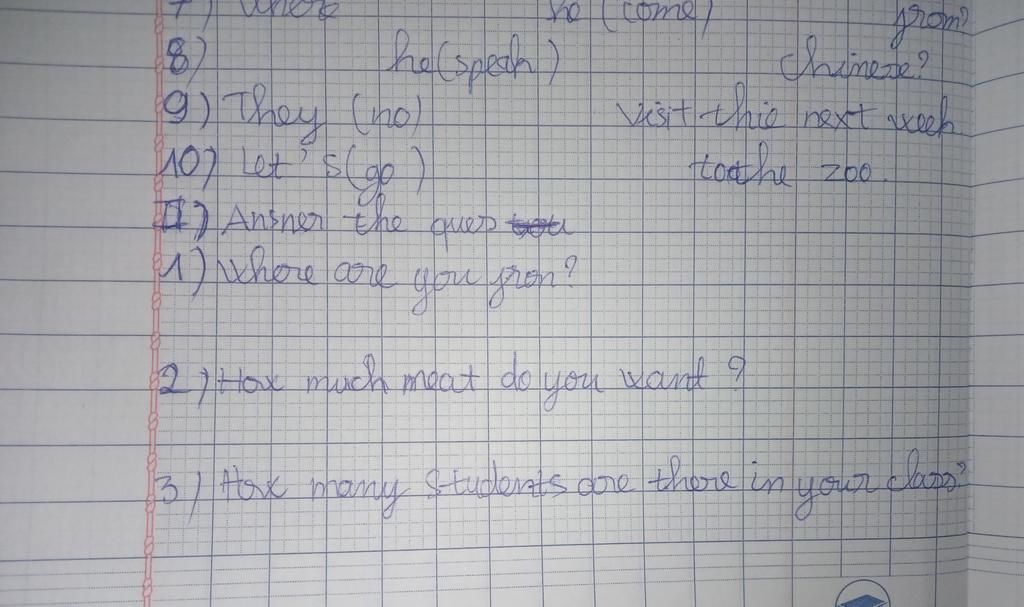 7) Where he (come) from?
8) he (speak) Chinese?
9) They (no) visit this next week
10) Let's (go) to the zoo.
II) Answer the ques
1) Where are you from?
2) How much meat do you want?
3) How many students are there in your class?